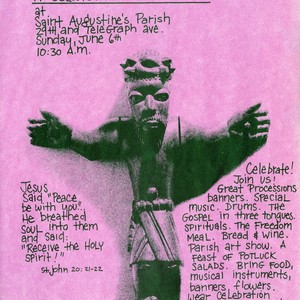 at
Saint Augustine's Parish
29th and Telegraph Ave.
Sunday, June 6th
10:30 A.M.
Jesus
Said "Peace
be with you."
He breathed
soul into them
and said:
"Receive the Holy
Spirit!"
St. John 20: 21-22
Celebrate!
Join us!
Great Processions
banners. Special
music. Drums. The
Gospel in three tongues.
Spirituals. The Freedom
Meal. Bread & Wine.
Parish art show. A
Feast of Potluck
Salads. Bring food,
musical instruments,
banners, flowers.
Wear Celebration